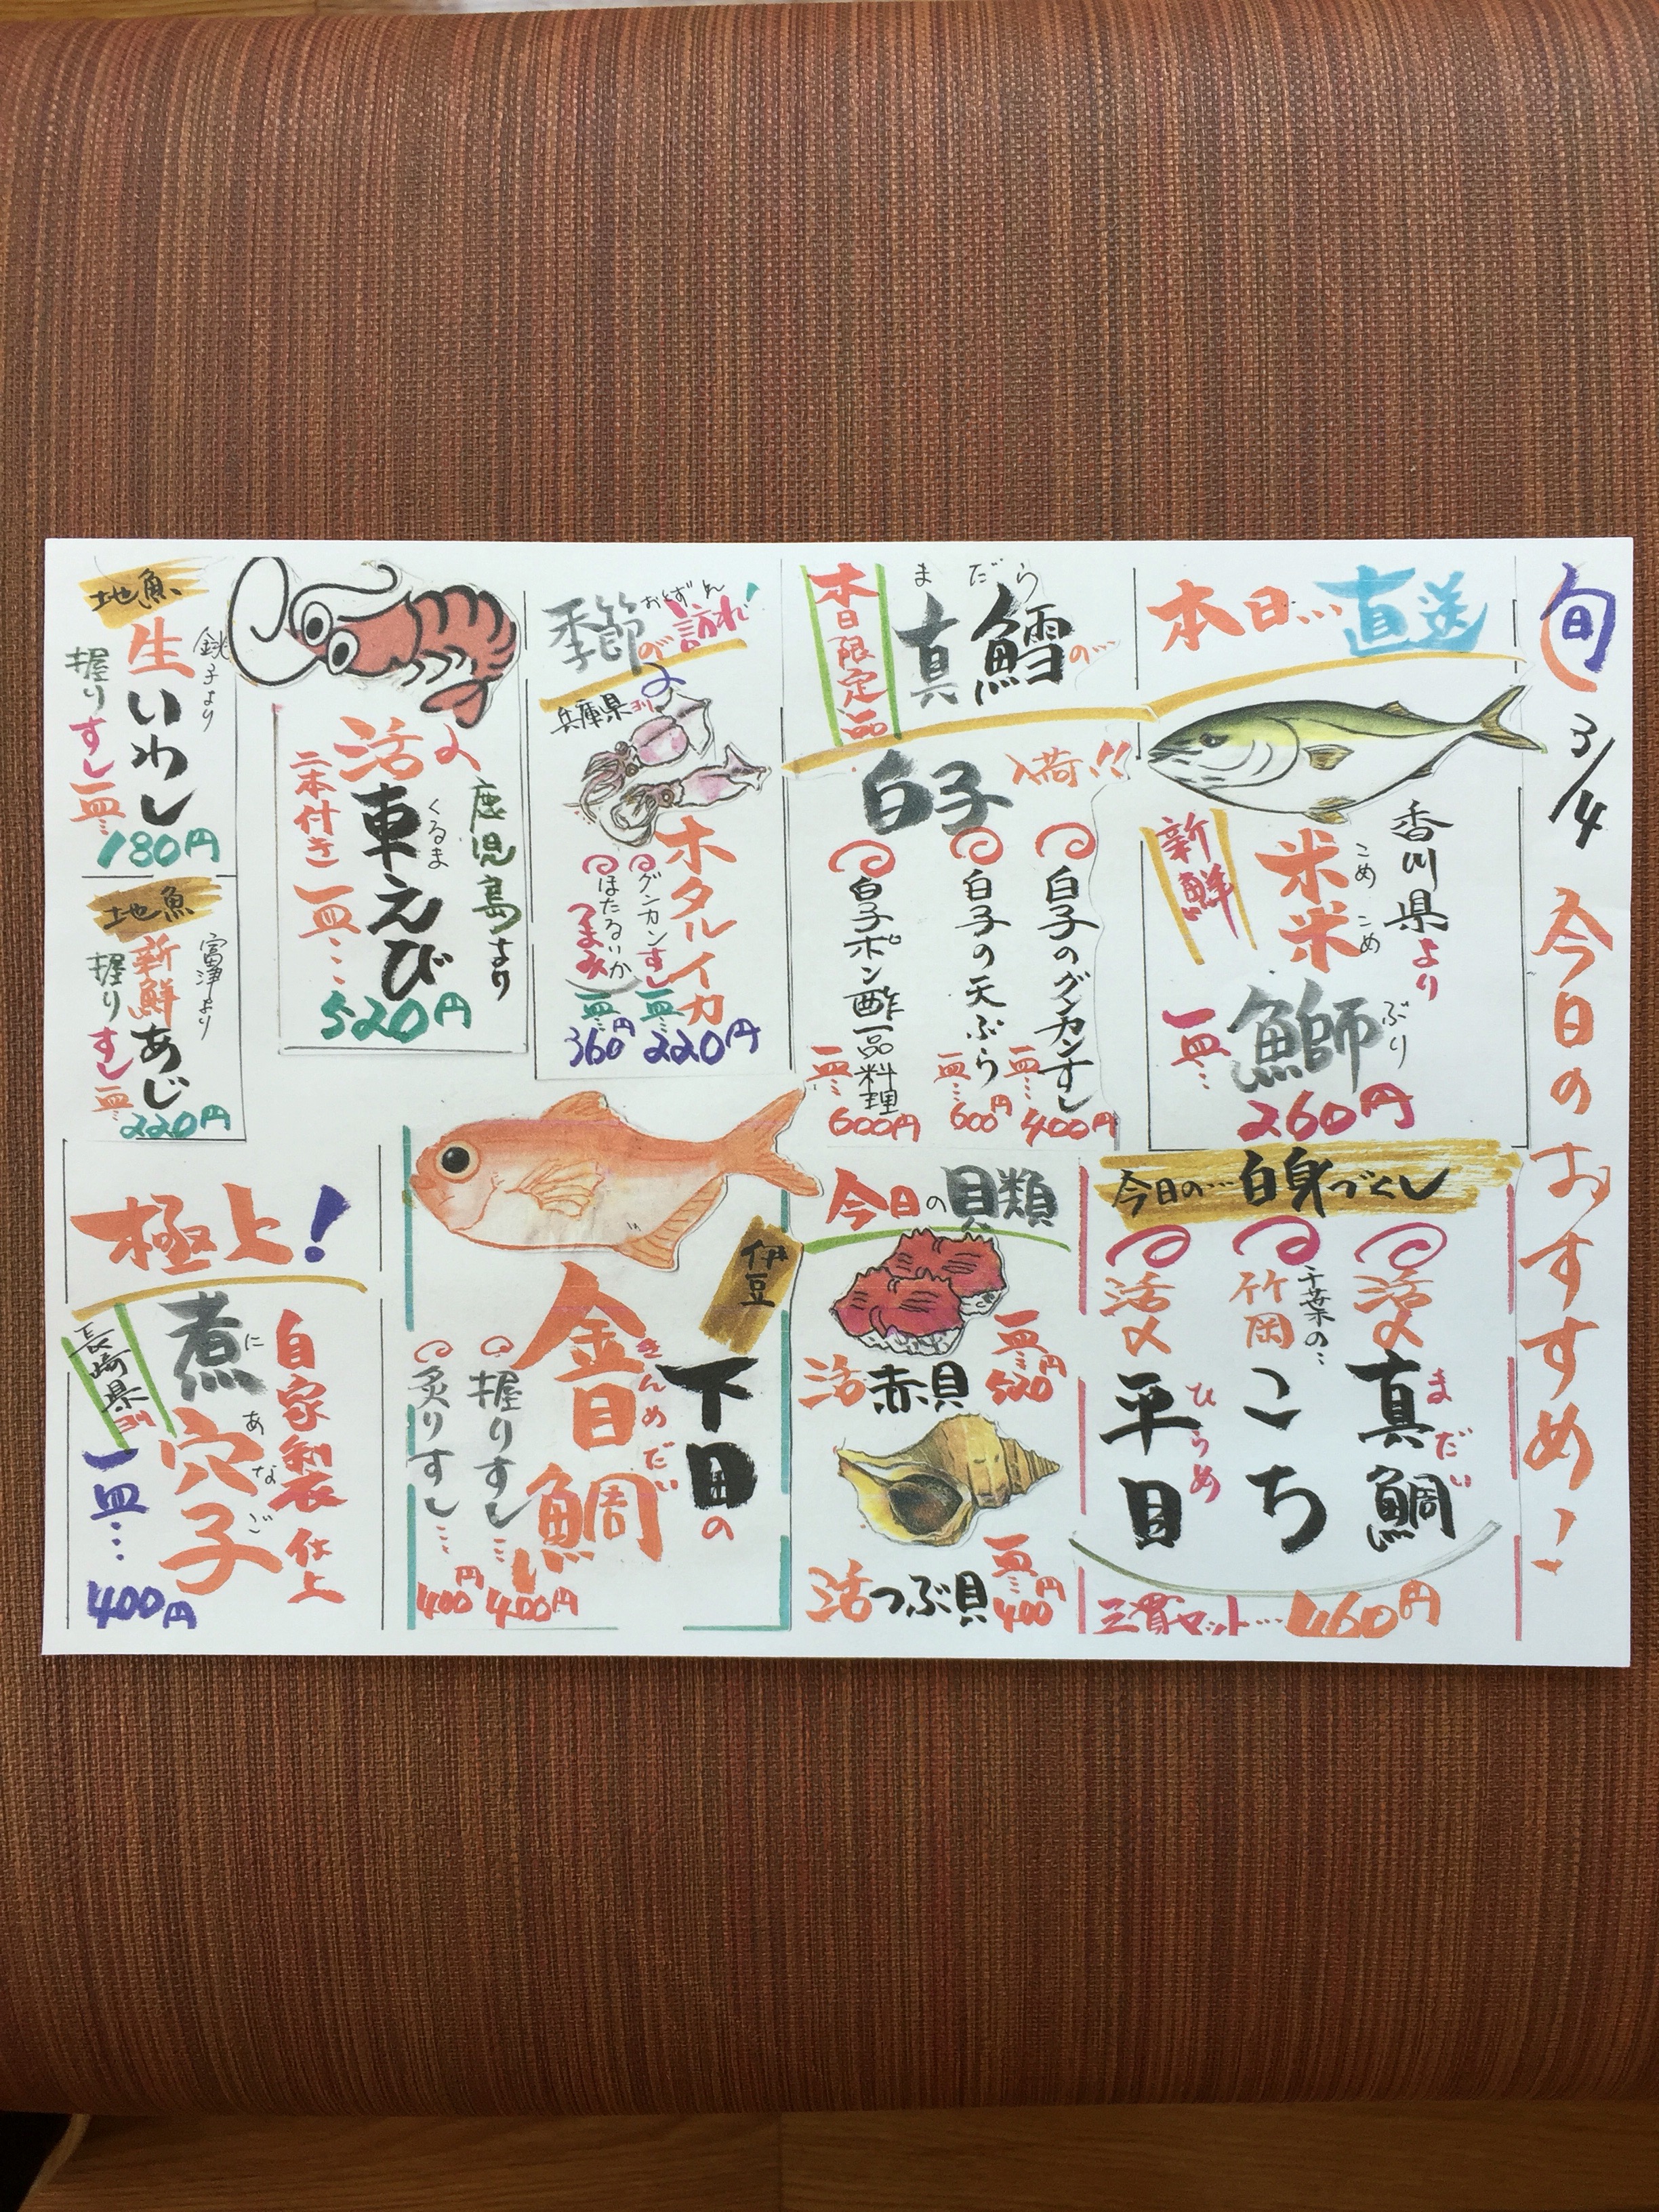 旬 3/4 今日のおすすめ！
本日…直送
香川県より
米米
こめ
こめ
鰤
ぶり
新鮮
一皿…
260円
本日限定品
真鱈の…
まだら
白子
入荷!!
白子のグンカンすし
一皿…
400円
白子の天ぷら
一皿…
600円
白子ポン酢一品料理
一皿…
600円
季節の訪れ!
おとずれ
兵庫県ヨリ
ホタルイカ
グンカンすし
一皿…
220円
ほたるいか
つまみ
一皿…
360円
鹿児島より
活〆
車えび
くるま
二本付き
一皿…
520円
地魚
銚子より
生いわし
握りすし一皿…
180円
地魚
富津より
新鮮あじ
握りすし一皿…
220円
今日の…白身づくし
活〆
真鯛
まだい
千葉の…
竹岡
こち
活〆
平目
ひらめ
三貫セット…460円
今日の貝類
活赤貝
一皿…
520円
活つぶ貝
一皿…
400円
伊豆
下田の
金目鯛
きんめだい
握りすし…
400円
炙りすし…
400円
極上！
自家製仕上
煮穴子
にあなご
長崎県ヨリ
一皿…
400円